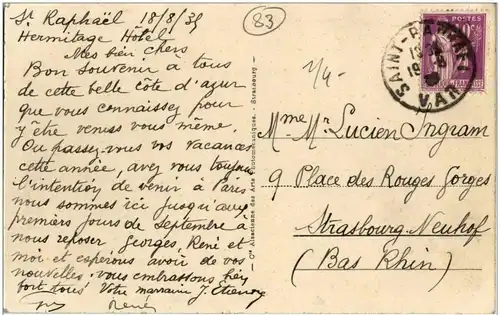 St Raphaël 18/8/35
Hermitage Hôtel
Mes bien chers
Bon souvenir à tous
de cette belle côte d'azur
que vous connaissez pour
y être venus vous même.
Ou passez-vous vos vacances
cette année, avez vous toujours
l'intention de venir à Paris
nous sommes ici jusqu'aux
premiers jours de septembre à
nous reposer, Georges, René et
moi et espérons avoir de vos
nouvelles. vous embrassons bien
fort tous! Votre marraine J.
René
83
POSTES
SAINT-RAPHAEL
VAR
Mme Mr Lucien Ingram
9 Place des Rouges Gorges
Strasbourg Neuhof
(Bas Rhin)
Cie Alsacienne des Arts Photomécaniques - Strasbourg